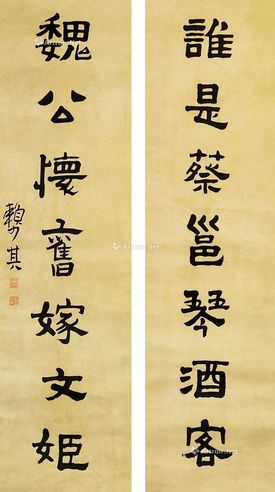 誰是蔡邕琴酒客
魏公懷舊嫁文姬
賴少其